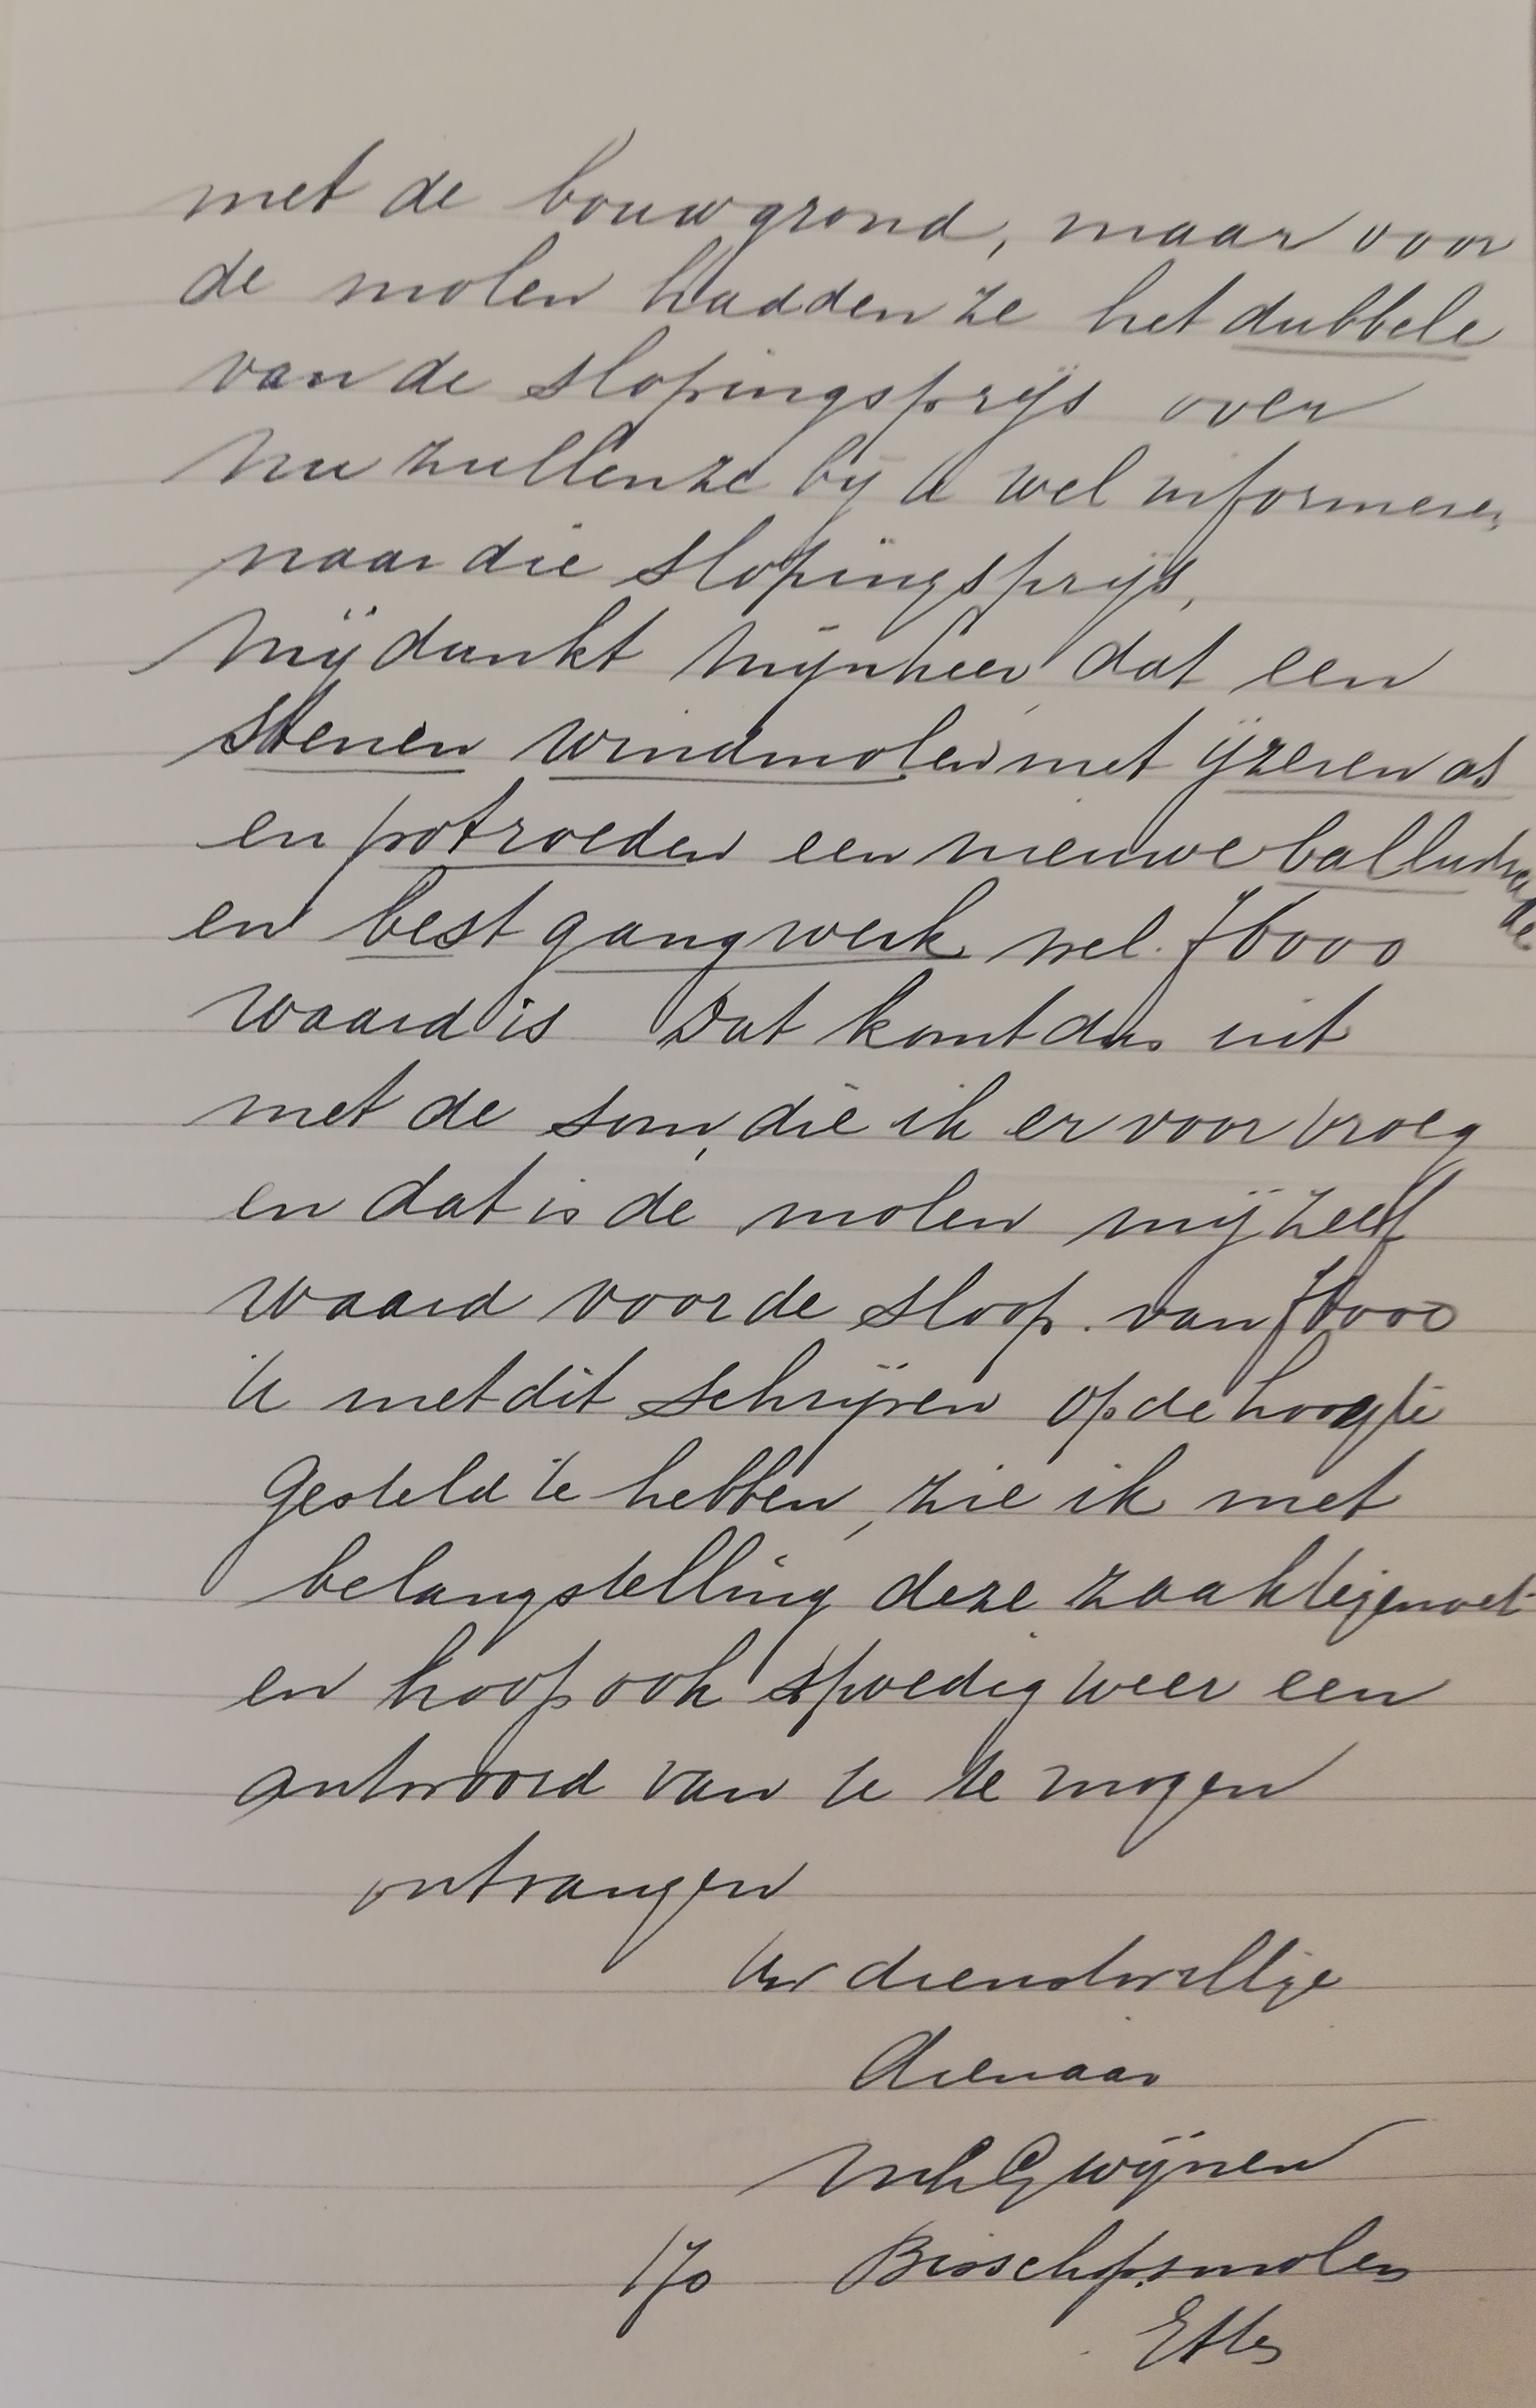 met de bouwgrond, maar voor
de molen hadden ze het dubbele
van de slopingsprijs over
Nu zullen ze bij U wel informeren
naar die slopingsprijs,
Mij dunkt Mijnheer dat een
stenen windmolen met ijzeren as
en potroeden een nieuwe ballustrade
en best gangwerk wel f6000
waard is Dat komt dus uit
met de som, die ik er voor vroeg
en dat is de molen mij zelf
waard voor de sloop. van f6000
U met dit schrijven op de hoogte
gesteld te hebben, zie ik met
belangstelling deze zaak tegemoet
en hoop ook spoedig weer een
antwoord van U te mogen
ontvangen
Uw dienstwillige
dienaar
Wijnen
Bisschopsmolen
Etten